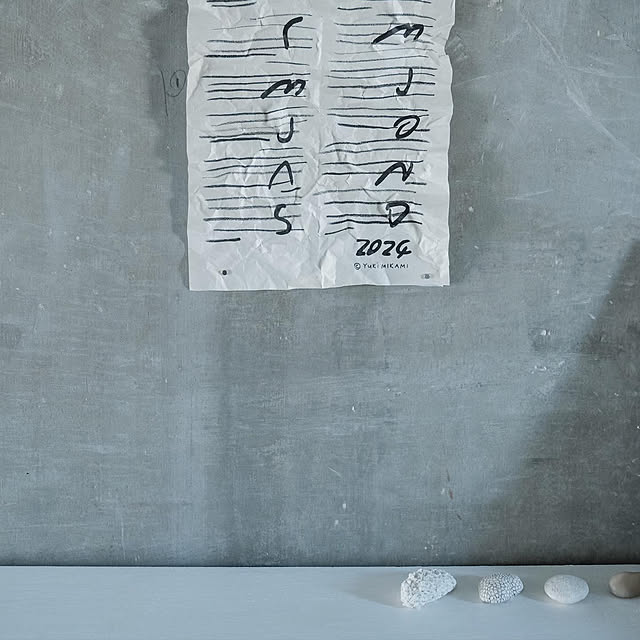 J M
M J
J O
A N
S D
2024
© YUKI MIKAMI